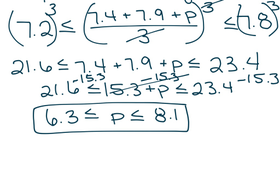 (7.2)^3 ≤ ((7.4 + 7.9 + p)/3)^3 ≤ (7.8)^3
21.6 ≤ 7.4 + 7.9 + p ≤ 23.4
21.6 -15.3 ≤ 15.3 + p -15.3 ≤ 23.4 -15.3
6.3 ≤ p ≤ 8.1